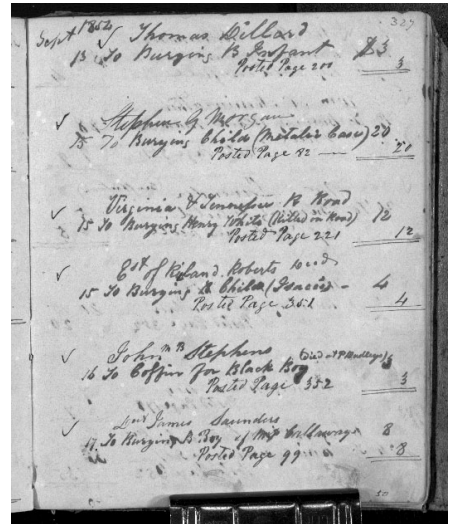 327
Sept 1854 Thomas Dillard
13 To Burying B Infant $3
Posted Page 200 3
Stephen G Morgan
15 To Burying Child (Metalic Case) 20
Posted Page 82 20
Virginia & Tennessee R Road
15 To Burying Henry White (Killed on Road) 12
Posted Page 221 12
Est of Roberts
15 To Burying B Child 4
Posted Page 351 4
John Stephens
16 To Coffin for Black Boy 3
Posted Page 352 3
James Saunders
17 To Burying B Boy of 8
Posted Page 99 8